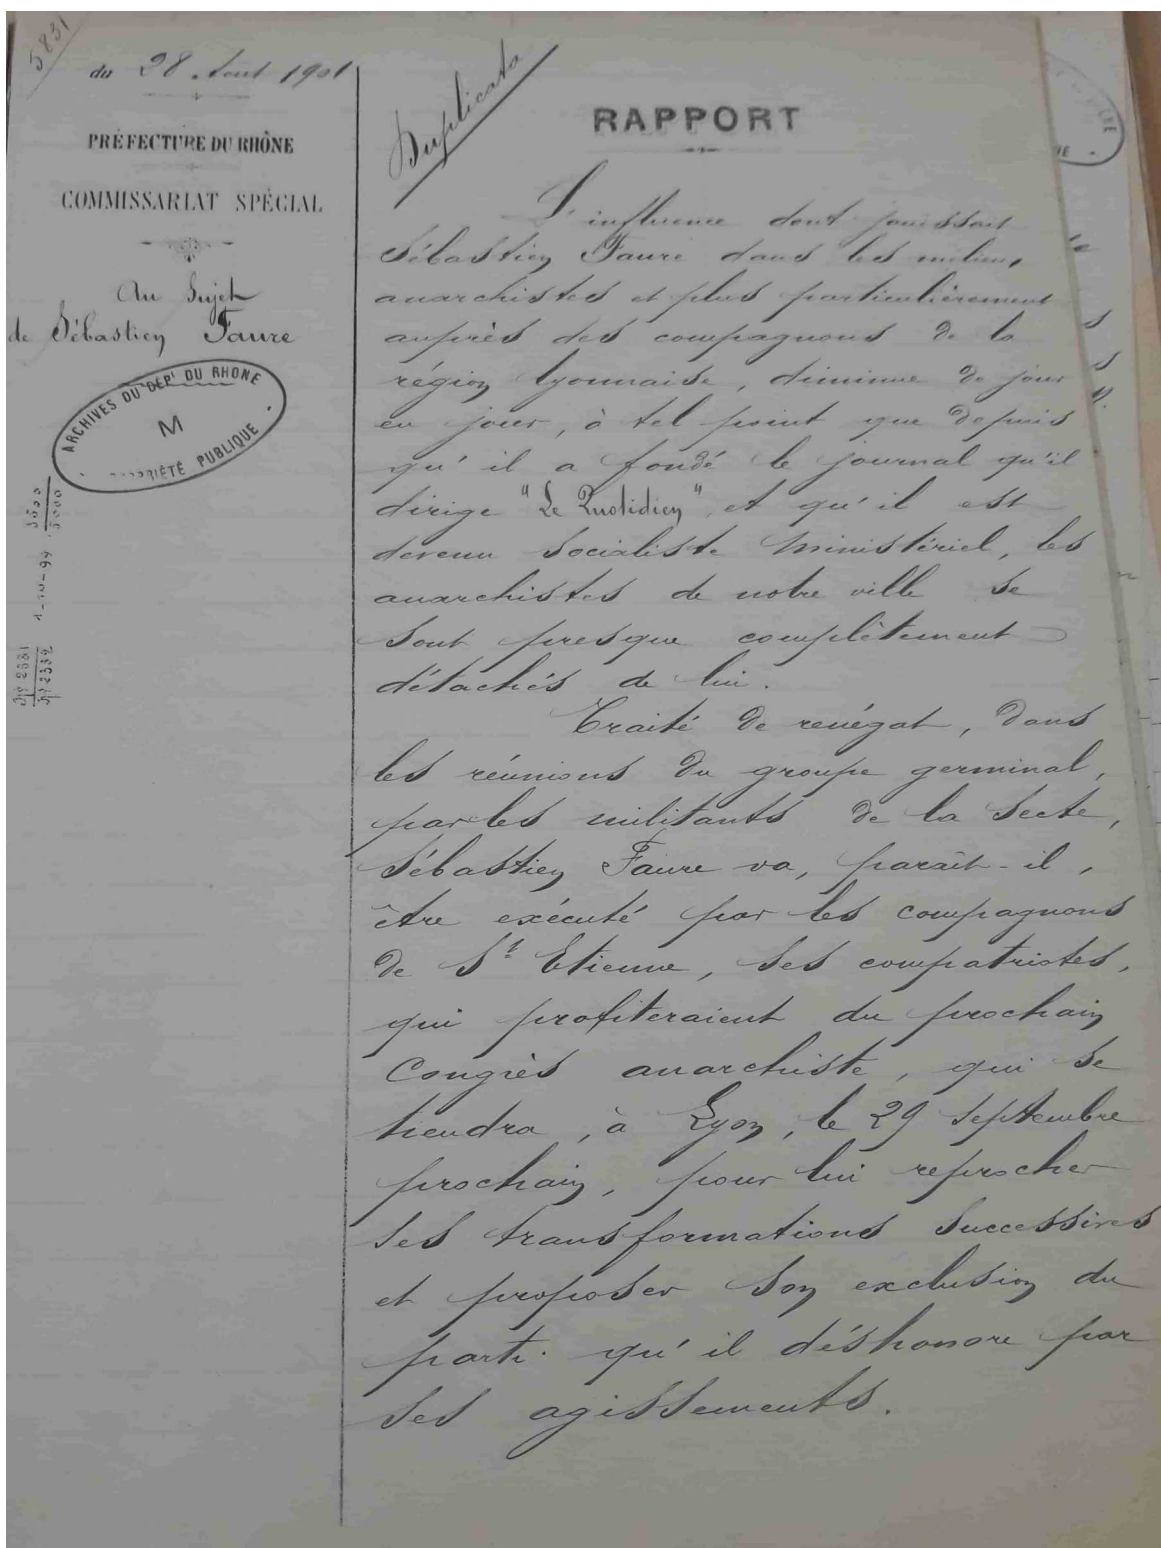 5831
du 28 Août 1901
PRÉFECTURE DU RHÔNE
COMMISSARIAT SPÉCIAL
Au Sujet
de Sébastien Faure
ARCHIVES DU DEPt DU RHONE
M
PROPRIÉTÉ PUBLIQUE
Nos 2331
Nos 2332
1-10-99
Duplicata
RAPPORT
L'influence dont jouissait
Sébastien Faure dans les milieux
anarchistes et plus particulièrement
auprès des compagnons de la
région lyonnaise, diminue de jour
en jour, à tel point que depuis
qu'il a fondé le journal qu'il
dirige "Le Quotidien", et qu'il est
devenu socialiste ministériel, les
anarchistes de notre ville se
sont presque complètement
détachés de lui.
Traité de renégat, dans
les réunions du groupe germinal,
par les militants de la secte,
Sébastien Faure va, paraît-il,
être exécuté par les compagnons
de St Etienne, ses compatriotes,
qui profiteraient du prochain
Congrès anarchiste, qui se
tiendra, à Lyon, le 29 Septembre
prochain, pour lui reprocher
ses transformations successives
et proposer son exclusion du
parti qu'il déshonore par
ses agissements.